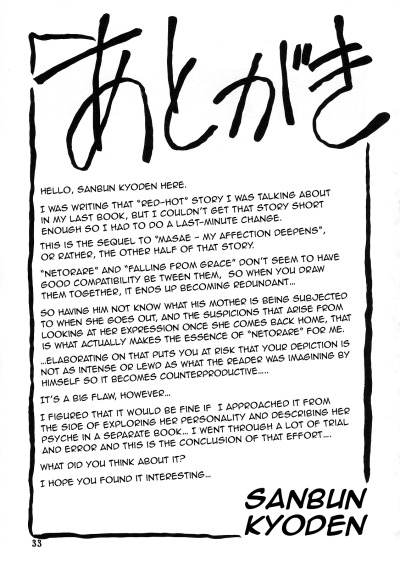 あとがき
HELLO, SANBUN KYODEN HERE.
I WAS WRITING THAT "RED-HOT" STORY I WAS TALKING ABOUT
IN MY LAST BOOK, BUT I COULDN'T GET THAT STORY SHORT
ENOUGH SO I HAD TO DO A LAST-MINUTE CHANGE.
THIS IS THE SEQUEL TO "MASAE - MY AFFECTION DEEPENS",
OR RATHER, THE OTHER HALF OF THAT STORY.
"NETORARE" AND "FALLING FROM GRACE" DON'T SEEM TO HAVE
GOOD COMPATIBILITY BE TWEEN THEM, SO WHEN YOU DRAW
THEM TOGETHER, IT ENDS UP BECOMING REDUNDANT...
SO HAVING HIM NOT KNOW WHAT HIS MOTHER IS BEING SUBJECTED
TO WHEN SHE GOES OUT, AND THE SUSPICIONS THAT ARISE FROM
LOOKING AT HER EXPRESSION ONCE SHE COMES BACK HOME, THAT
IS WHAT ACTUALLY MAKES THE ESSENCE OF "NETORARE" FOR ME.
...ELABORATING ON THAT PUTS YOU AT RISK THAT YOUR DEPICTION IS
NOT AS INTENSE OR LEWD AS WHAT THE READER WAS IMAGINING BY
HIMSELF SO IT BECOMES COUNTERPRODUCTIVE.....
IT'S A BIG FLAW, HOWEVER...
I FIGURED THAT IT WOULD BE FINE IF I APPROACHED IT FROM
THE SIDE OF EXPLORING HER PERSONALITY AND DESCRIBING HER
PSYCHE IN A SEPARATE BOOK... I WENT THROUGH A LOT OF TRIAL
AND ERROR AND THIS IS THE CONCLUSION OF THAT EFFORT....
WHAT DID YOU THINK ABOUT IT?
I HOPE YOU FOUND IT INTERESTING...
SANBUN
KYODEN
33